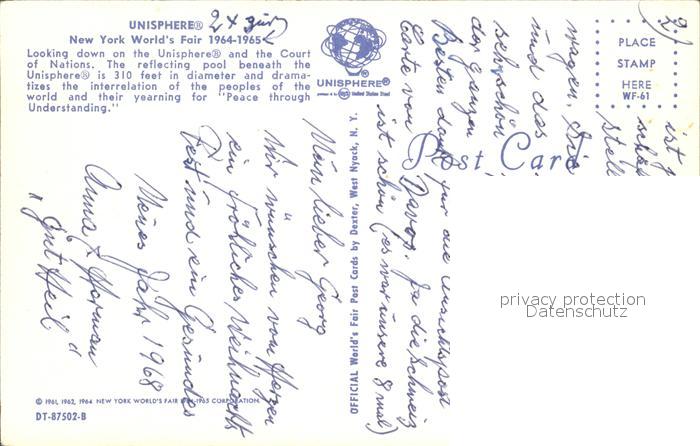 UNISPHERE®
New York World's Fair 1964-1965
Looking down on the Unisphere® and the Court
of Nations. The reflecting pool beneath the
Unisphere® is 310 feet in diameter and drama-
tizes the interrelation of the peoples of the
world and their yearning for "Peace through
Understanding."
UNISPHERE®
United States Steel
PLACE
STAMP
HERE
WF-61
Post Card
OFFICIAL World's Fair Post Cards by Dexter, West Nyack, N. Y.
Mein lieber Georg
Wir wünschen von Herzen
ein fröhliches Weihnachts
Fest und ein Gesundes
Neues Jahr 1968
Anna & Herman
"Gut Heil"
2)
ist
stell
wagen. Die
und das
sehr schön
der ganzen
Besten Dank für die Ansichtspost
Karte von Davos. Ja die Schweiz
ist schön (es war unsere 8 mal)
privacy protection
Datenschutz
© 1961, 1962, 1964 NEW YORK WORLD'S FAIR 1964-1965 CORPORATION
DT-87502-B